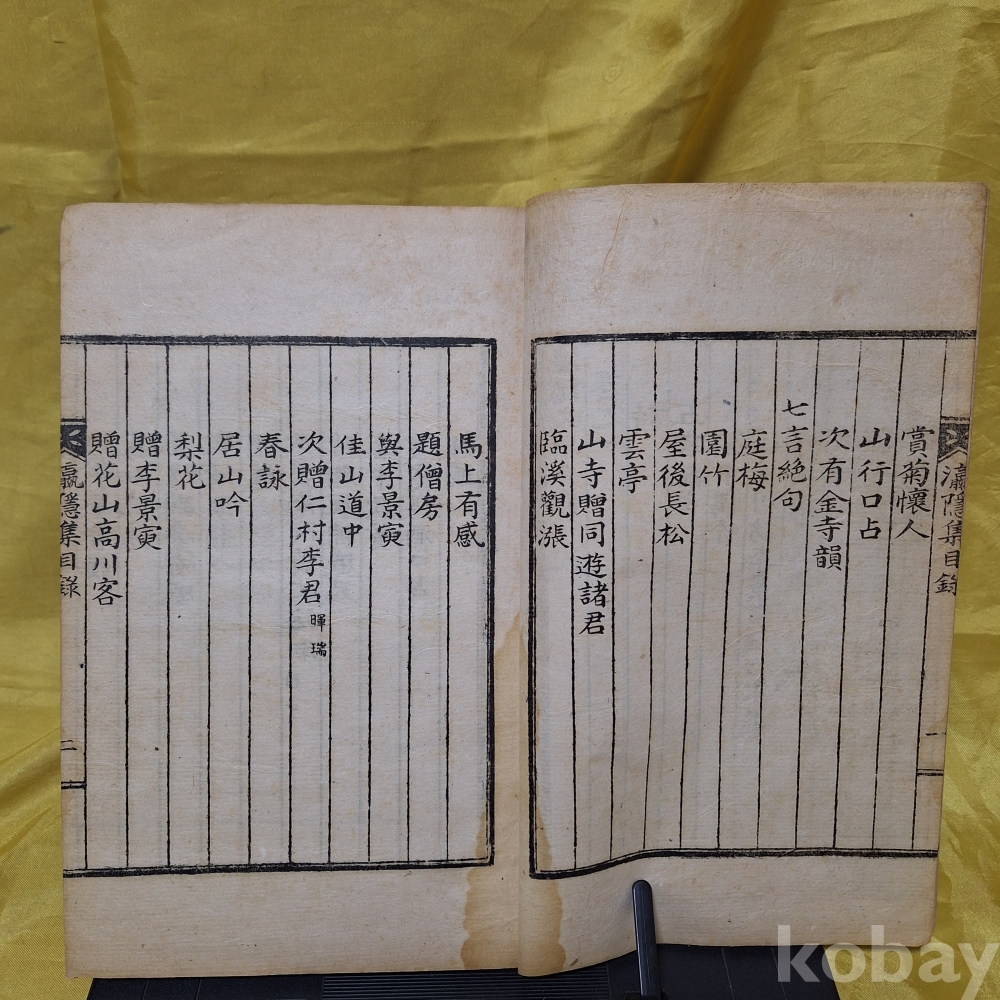 瀛隱集目錄
一
賞菊懷人
山行口占
次有金寺韻
七言絶句
庭梅
園竹
屋後長松
雲亭
山寺贈同遊諸君
臨溪觀漲
馬上有感
題僧房
與李景寅
佳山道中
次贈仁村李君 暉瑞
春詠
居山吟
梨花
贈李景寅
贈花山高川客
瀛隱集目錄
二
kobay